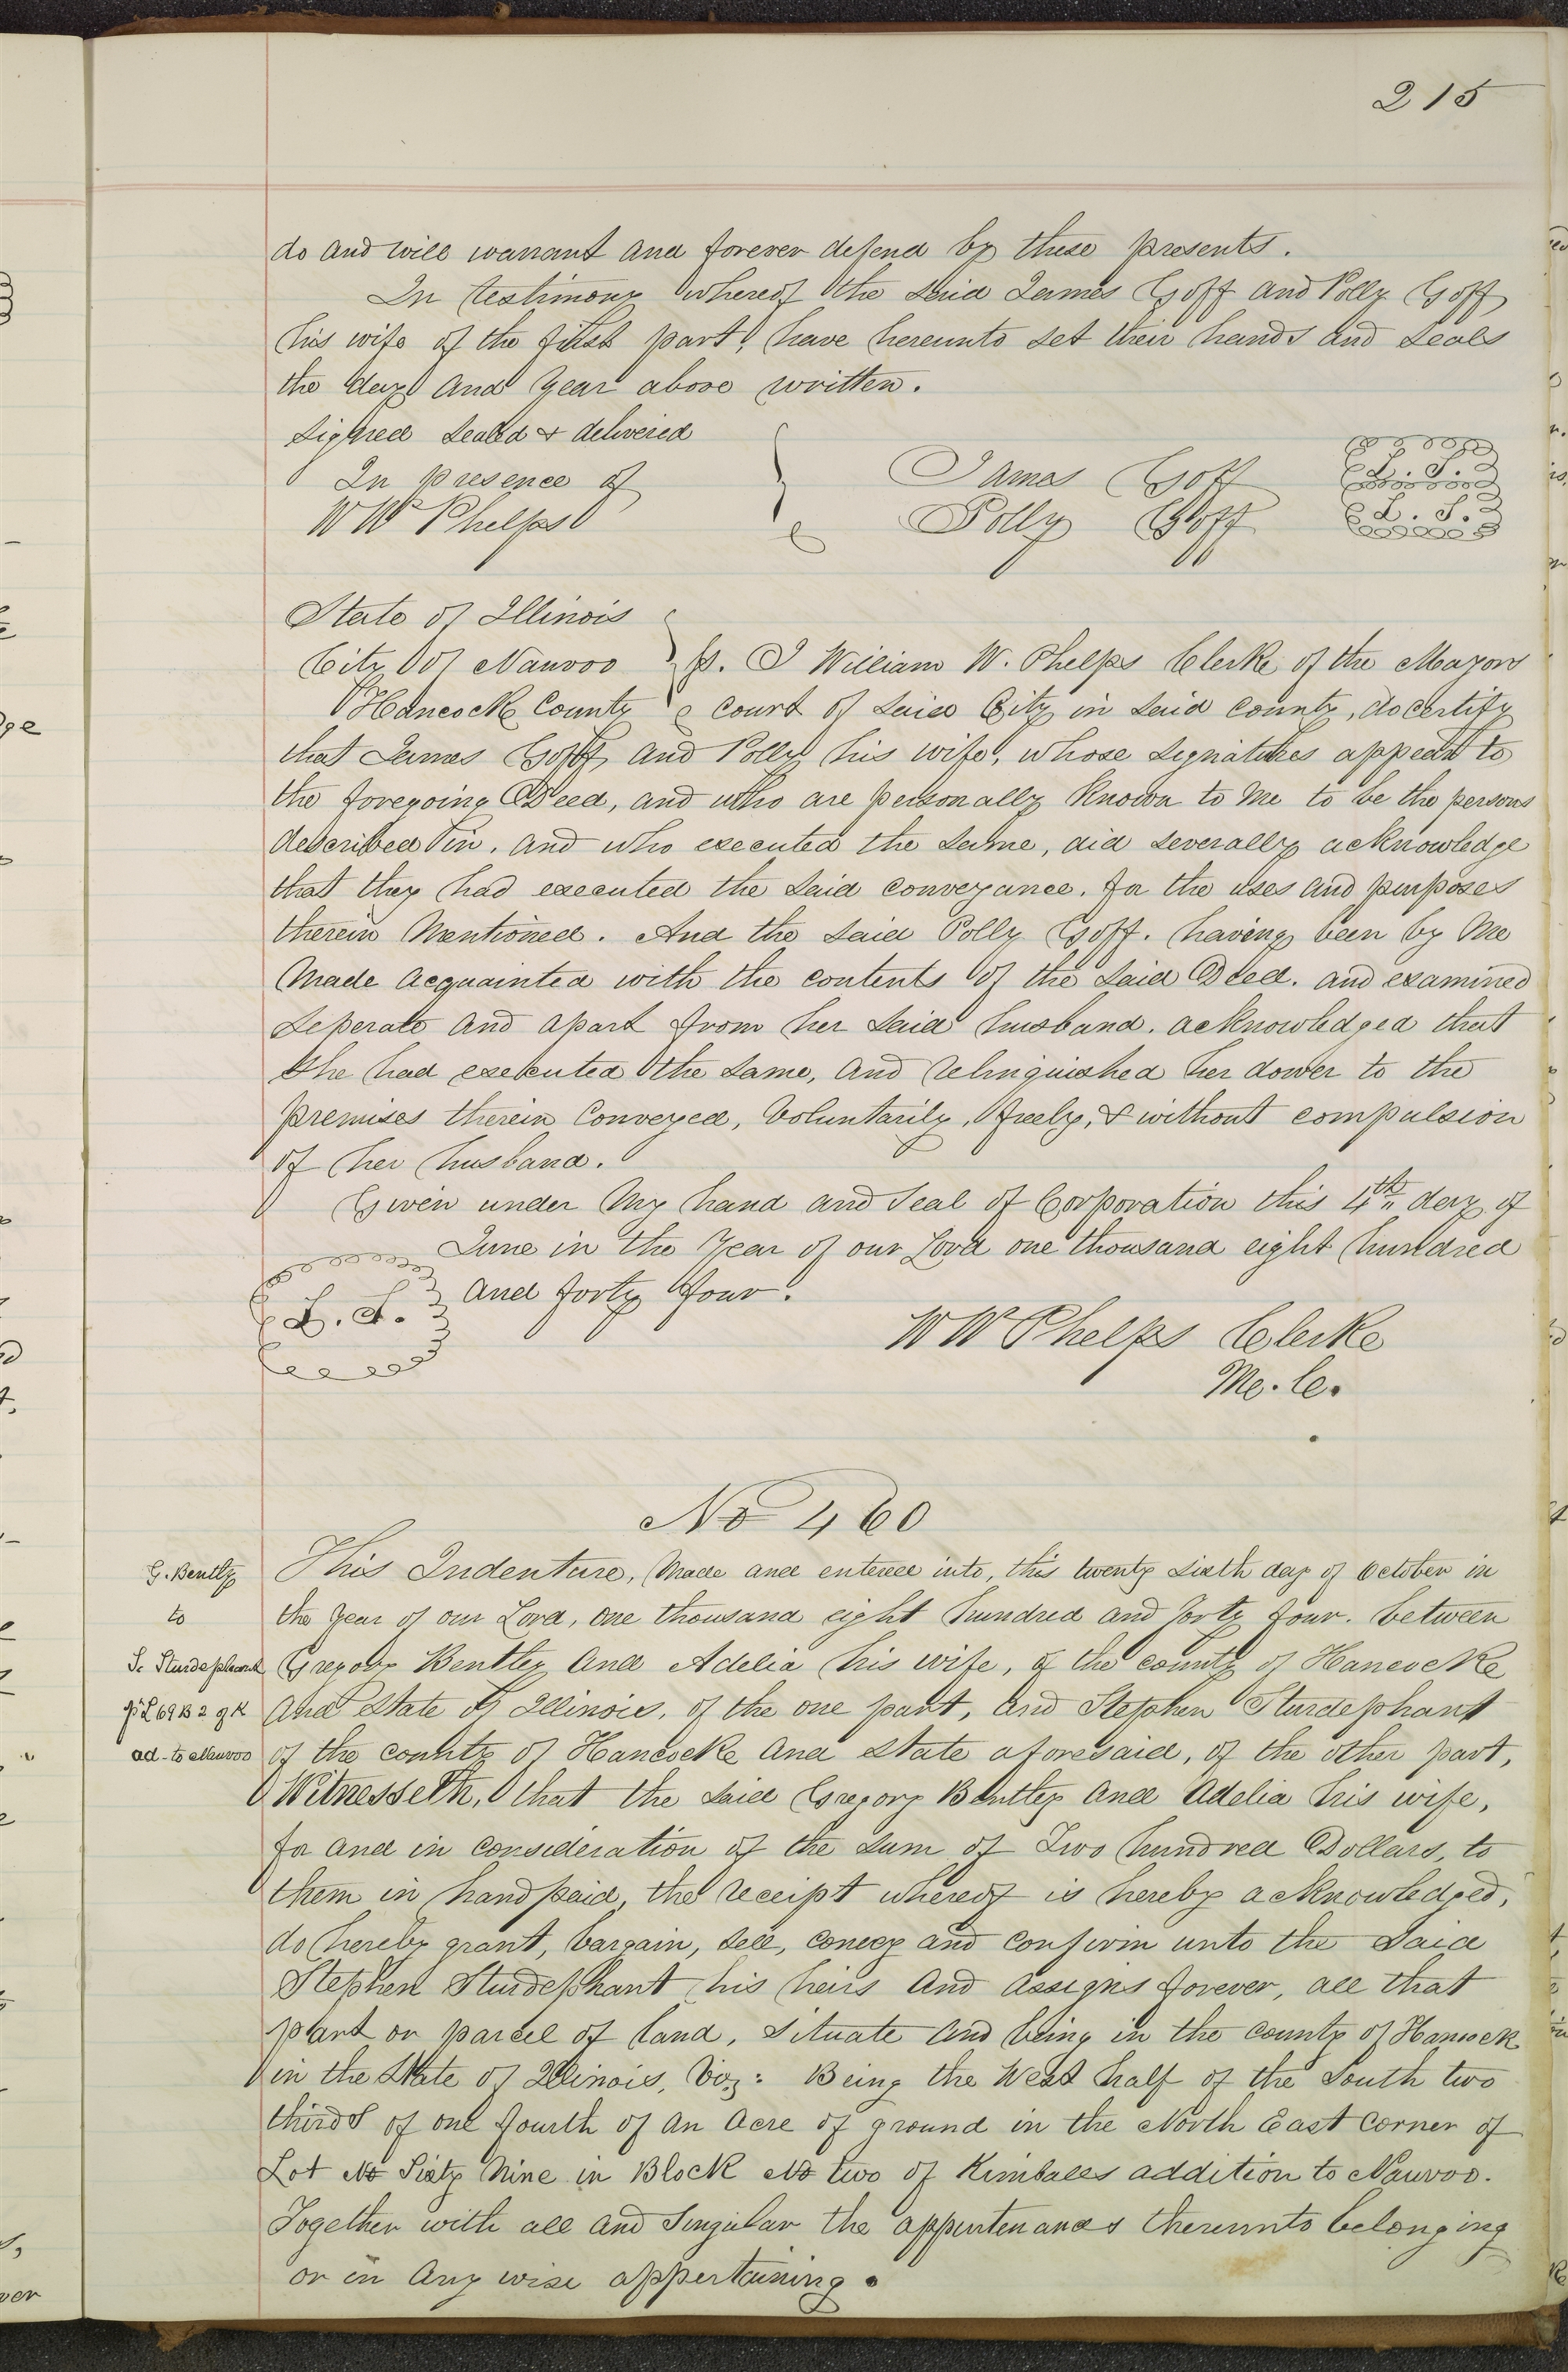 215
do and will warrant and forever defend by these presents.
In testimony whereof the said James Goff and Polly Goff
his wife of the first part, have hereunto set their hands and seals
the day and year above written.
Signed sealed & delivered
In presence of
W W Phelps
James Goff L. S.
Polly Goff L. S.
State of Illinois
City of Nauvoo ss. I William W. Phelps Clerke of the Mayors
Hancock County Court of said City in said county, do certify
that James Goff and Polly his wife, whose signatures appear to
the foregoing Deed, and who are personally known to me to be the persons
described in, and who executed the same, did severally acknowledge
that they had executed the said conveyance, for the uses and purposes
therein mentioned. And the said Polly Goff. having been by me
made acquainted with the contents of the said Deed. and examined
seperate and apart from her said husband. acknowledged that
she had executed the same, and relinquished her dower to the
premises therein conveyed, voluntarily, freely, & without compulsion
of her husband.
Given under my hand and seal of Corporation this 4th day of
June in the year of our Lord one thousand eight hundred
L. S. and forty four.
W W Phelps Clerke
M. C.
No 460
G. Bently
to
S. Sturdephant
pt L 69 B 2 of K
ad- to Nauvoo
This Indenture, made and entered into, this twenty sixth day of October in
the year of our Lord, one thousand eight hundred and forty four. between
Gregory Bentley and Adelia his wife, of the county of Hancocke
and State of Illinois, of the one part, and Stephen Sturdephant
of the county of Hancocke and state aforesaid, of the other part,
Witnesseth, that the said Gregory Bentley and Adelia his wife,
for and in consideration of the sum of Two hundred Dollars, to
them in hand paid, the receipt whereof is hereby acknowledged,
do hereby grant, bargain, sell, convey and confirm unto the said
Stephen Sturdephant his heirs and assigns forever, all that
part or parcel of land, situate and being in the county of Hancock
in the State of Illinois, viz: Being the West half of the South two
thirds of one fourth of an acre of ground in the North East corner of
Lot No Sixty Nine in Block No two of Kimballs addition to Nauvoo.
Together with all and singular the appurtenances thereunto belonging
or in any wise appertaining.